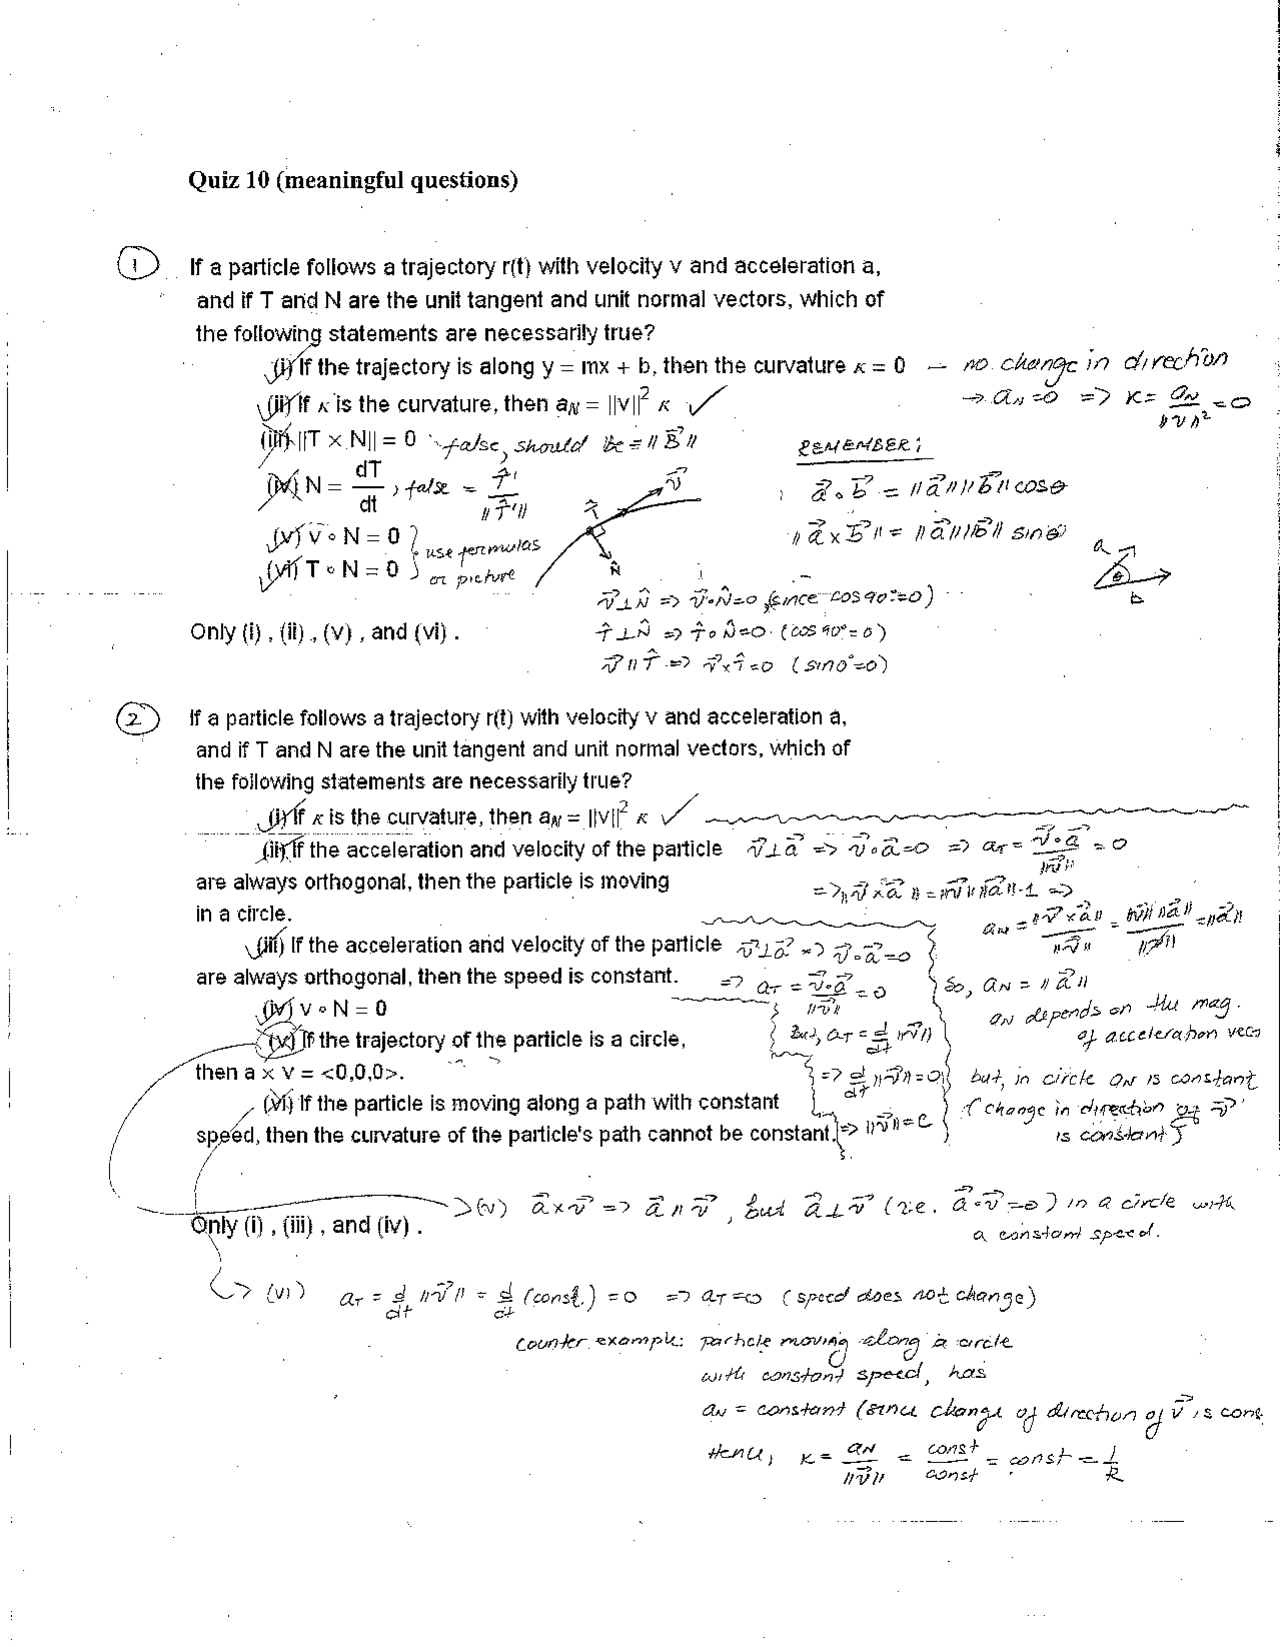 Quiz 10 (meaningful questions)
1 If a particle follows a trajectory r(t) with velocity v and acceleration a,
and if T and N are the unit tangent and unit normal vectors, which of
the following statements are necessarily true?
(i) If the trajectory is along y = mx + b, then the curvature κ = 0 — no change in direction
→ a_N = 0 => κ = a_N / ||v||² = 0
(ii) If κ is the curvature, then a_N = ||v||² κ ✓
(iii) ||T × N|| = 0 false, should be = ||B⃗||
REMEMBER:
(iv) N = dT/dt , false = T̂' / ||T̂'||
v⃗
T̂
N̂
a⃗ ∘ b⃗ = ||a⃗|| ||b⃗|| cosθ
||a⃗ × b⃗|| = ||a⃗|| ||b⃗|| sinθ
a
θ
b
(v) v ∘ N = 0
(vi) T ∘ N = 0
} use formulas
or picture
v⃗ ⊥ N̂ => v⃗ ∘ N̂ = 0 (since cos 90° = 0)
T̂ ⊥ N̂ => T̂ ∘ N̂ = 0 (cos 90° = 0)
v⃗ || T̂ => v⃗ × T̂ = 0 (sin 0° = 0)
Only (i) , (ii) , (v) , and (vi) .
2 If a particle follows a trajectory r(t) with velocity v and acceleration a,
and if T and N are the unit tangent and unit normal vectors, which of
the following statements are necessarily true?
(i) If κ is the curvature, then a_N = ||v||² κ ✓
(ii) If the acceleration and velocity of the particle
are always orthogonal, then the particle is moving
in a circle.
v⃗ ⊥ a⃗ => v⃗ ∘ a⃗ = 0 => a_T = v⃗ ∘ a⃗ / ||v⃗|| = 0
=> ||v⃗ × a⃗|| = ||v⃗|| ||a⃗|| · 1 =>
a_N = ||v⃗ × a⃗|| / ||v⃗|| = ||v⃗|| ||a⃗|| / ||v⃗|| = ||a⃗||
So, a_N = ||a⃗||
a_N depends on the mag.
of acceleration vec
but, in circle a_N is constant
(change in direction of v⃗
is constant)
(iii) If the acceleration and velocity of the particle
are always orthogonal, then the speed is constant.
v⃗ ⊥ a⃗ => v⃗ ∘ a⃗ = 0
=> a_T = v⃗ ∘ a⃗ / ||v⃗|| = 0
But, a_T = d/dt ||v⃗||
=> d/dt ||v⃗|| = 0
=> ||v⃗|| = c
(iv) v ∘ N = 0
(v) If the trajectory of the particle is a circle,
then a x v = <0,0,0>.
(vi) If the particle is moving along a path with constant
speed, then the curvature of the particle's path cannot be constant.
Only (i) , (iii) , and (iv) .
→ (v) a⃗ × v⃗ => a⃗ || v⃗ , but a⃗ ⊥ v⃗ (i.e. a⃗ ∘ v⃗ = 0) in a circle with
a constant speed.
→ (vi) a_T = d/dt ||v⃗|| = d/dt (const.) = 0 => a_T = 0 (speed does not change)
counter example: particle moving along a circle
with constant speed, has
a_N = constant (since change of direction of v⃗ is cons
Hence, κ = a_N / ||v⃗|| = const / const = const = 1/R